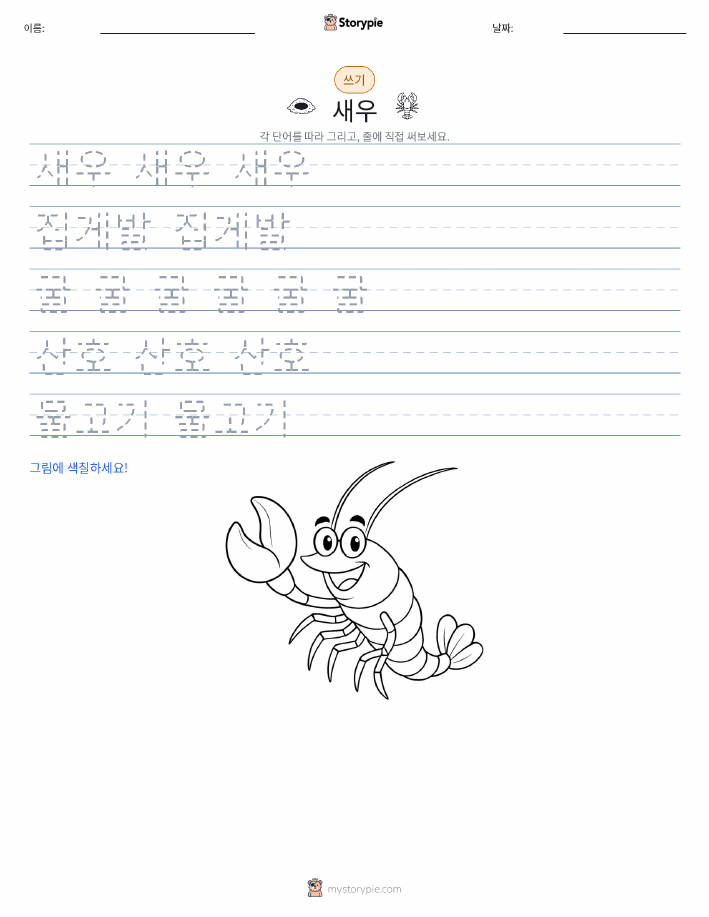 이름:
Storypie
날짜:
쓰기
새우
각 단어를 따라 그리고, 줄에 직접 써보세요.
새우 새우 새우
집게발 집게발
굴 굴 굴 굴 굴 굴
산호 산호 산호
물고기 물고기
그림에 색칠하세요!
mystorypie.com